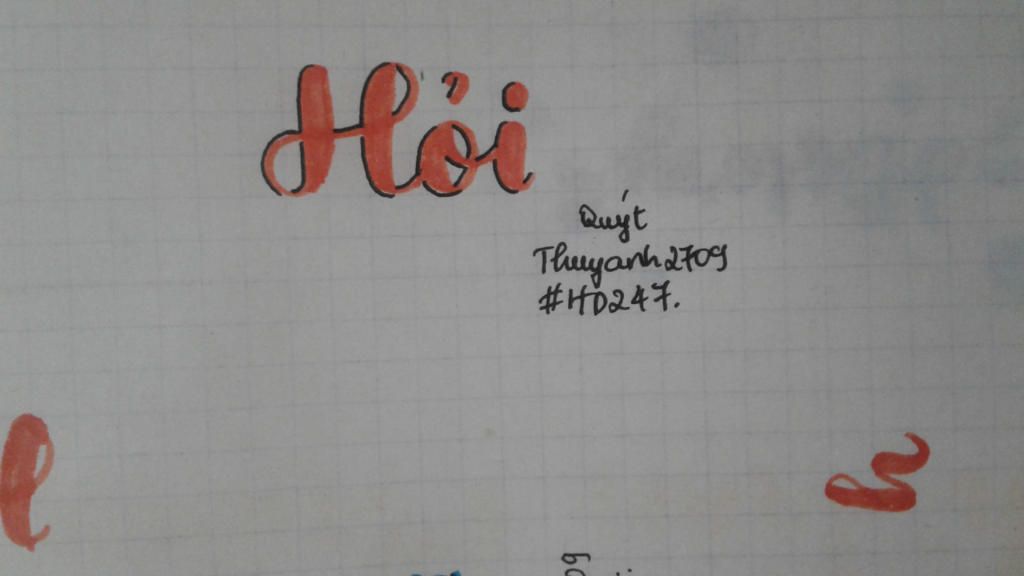 Hỏi
Quýt
Thuyanh2709
#HD247.
l
h
09